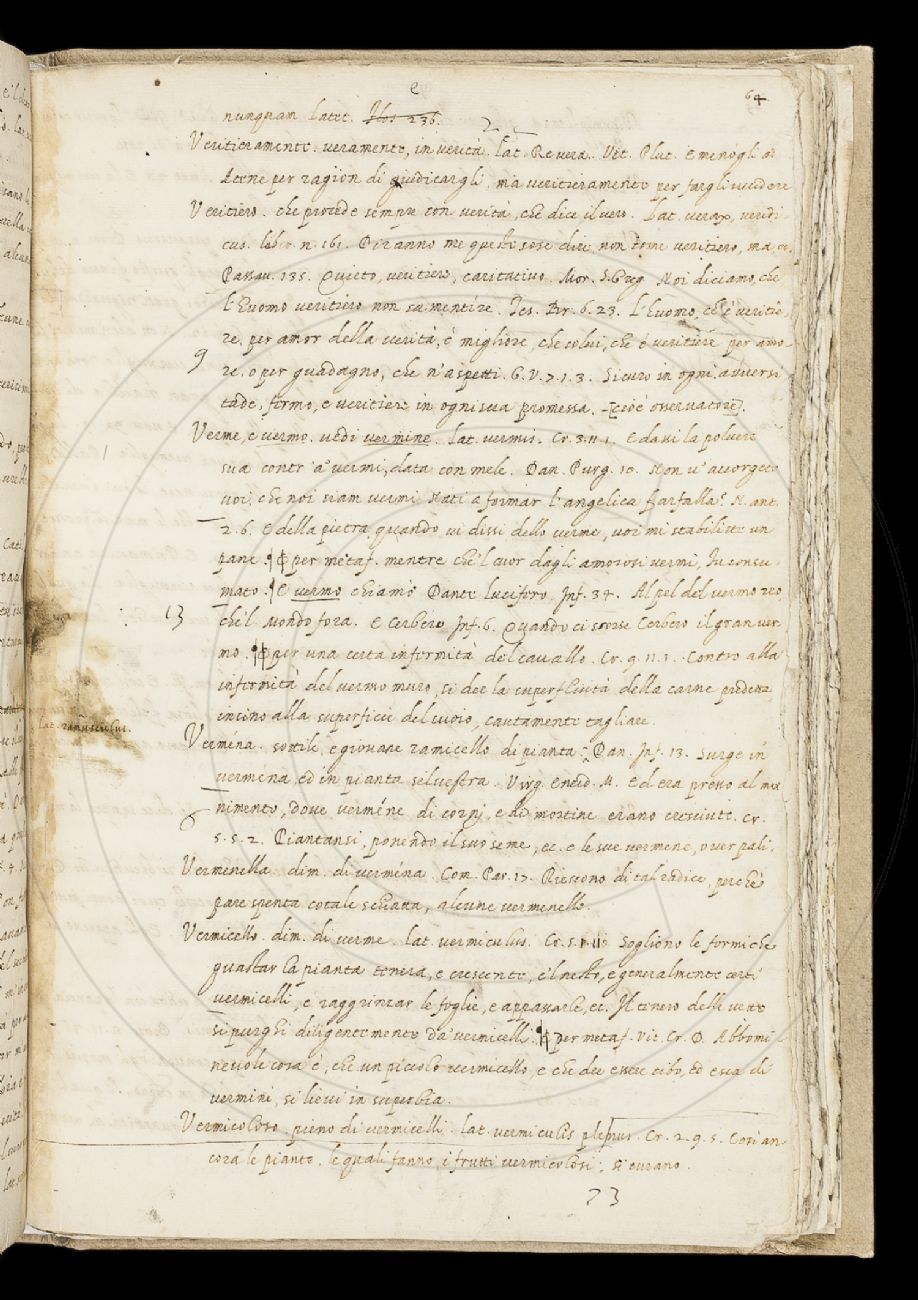 e
64
nunquam latet. Flos 236.
Veritieramente. veramente, in verità. lat. Revera. Vit. Plut. E menogli ad
Atene per ragion di giudicargli, ma veritieramente per fargli uccidere
Veritiero. che procede sempre con verità, che dice il vero. Lat. verax, veridi-
cus. labir. n. 161. Diranno me queste cose dire non come veritiero, ma, ec.
Passav. 135. Quieto, veritiero, caritativo. Mor. S. Greg. Noi diciamo, che
l'Huomo veritiero non sa mentire. Tes. Br. 6. 23. L'huomo, ch'è veritie-
re, per amor della verità, è migliore, che colui, che è veritiere per amo-
9
re, o per guadagno, che n'aspetti. G. V. 7. 1. 3. Sicuro in ogni avversi
tade, fermo, e veritiere in ogni sua promessa. [cioè osservatore].
Verme, e vermo. vedi vermine. lat. vermis. Cr. 3. 11. 1. E dassi la polvere
sua contr'a' vermi, data con mele. Dan. Purg. 10. Non v'accorgete
voi, che noi siam vermi Nati a formar l'angelica farfalla? N. ant.
2. 6. E della pietra, quando vi dissi dello verme, voi mi stabiliste un
pane. ¶ per metaf. mentre che'l cuor dagli amorosi vermi, Fu consu-
mato. ¶ E vermo chiamò Dante lucifero. Inf. 34. Al pel del vermo reo,
13
che'l Mondo fora. E Cerbero Inf. 6. Quando ci scorse Cerbero il gran ver-
mo. ¶ per una certa infermità del cavallo. Cr. 9. 11. 1. Contro alla
infermità del vermo muro, si dee la superfluità della carne predetta,
insino alla superficie del cuoio, cautamente tagliare.
Lat. ramusculus.
Vermèna. sottile, e giovane ramicello di pianta. Dan. Inf. 13. Surge in
vermena, ed in pianta silvestra. Virg. Eneid. M. Ed era presso al mo-
nimento, dove vermène di corni, e di mortine erano cresciute. Cr.
6
5. 5. 2. Piantansi, ponendo il suo seme, ec. e le sue vermene, over pali.
Vermenella. dim. di vermèna. Com. Par. 17. Riescono di tal radice, perchè
pare spenta cotale schiatta, alcune vermenelle.
Vermicello. dim. di verme. lat. vermiculus. Cr. 5. Sogliono le formiche
guastar la pianta tenera, e crescente, e'l nesto, e generalmente certi
vermicelli, e raggrinzar le foglie, e appassarle, ec. Il tenero delle vette
si purghi diligentemente da' vermicelli. ¶ per metaf. Vit. Cr. D. Abbomi-
nevole cosa è, che un piccolo vermicello, e che dee essere cibo, ed esca di
vermini, si lievi in superbia.
Vermicoloso. pieno di vermicelli. lat. vermiculis plenus. Cr. 2. 9. 5. Così an-
cora le piante, le quali fanno i frutti vermicolosi, si curano.
73